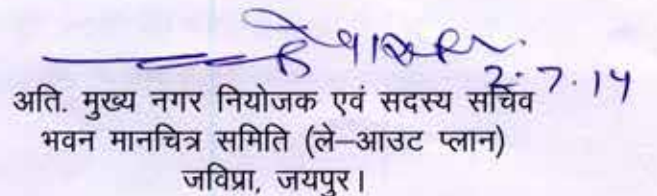 2.7.14
अति. मुख्य नगर नियोजक एवं सदस्य सचिव
भवन मानचित्र समिति (ले–आउट प्लान)
जविप्रा, जयपुर।